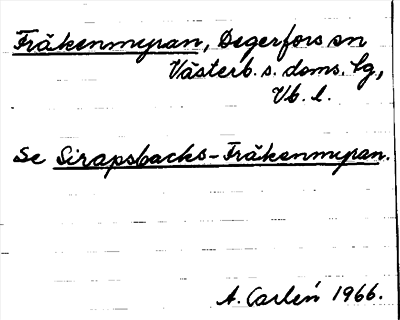 Fräkenmyran, Degerfors sn
Västerb. s. doms. lg,
Vb. l.
Se Sirapsbacks-Fräkenmyran.
A. Carlén 1966.